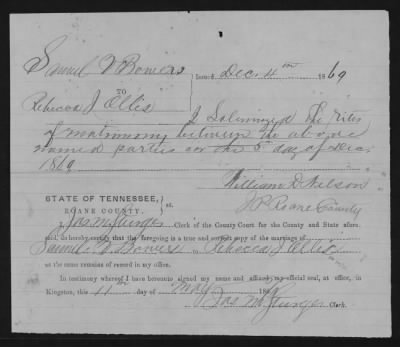 Samuel V Bowers
Issued Dec. 4th 1869
TO
Rebecca J Ellis
I Solemnized The rites
of matrimony between the above
named parties on the 5 day of Dec.
1869
William D Nelson
JP Roane County
STATE OF TENNESSEE,
ROANE COUNTY. ss.
I, Jas. M. Clerk of the County Court for the County and State afore-
said, do hereby certify that the foregoing is a true and correct copy of the marriage of
Samuel V Bowers to Rebecca J Ellis
as the same remains of record in my office.
In testimony whereof I have hereunto signed my name and affixed my official seal, at office, in
Kingston, this 11th day of May 18
Jas. M. Clerk.